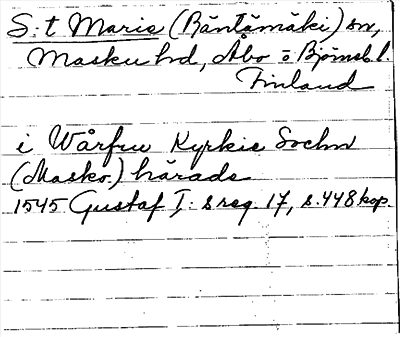 S:t Marie (Räntämäki) sn,
Masku hd, Åbo o Björneb. l.
Finland
i Wårfru Kyrkie Sochn
(Masko) härade
1545 Gustaf I: s reg. 17, s. 448 kop.